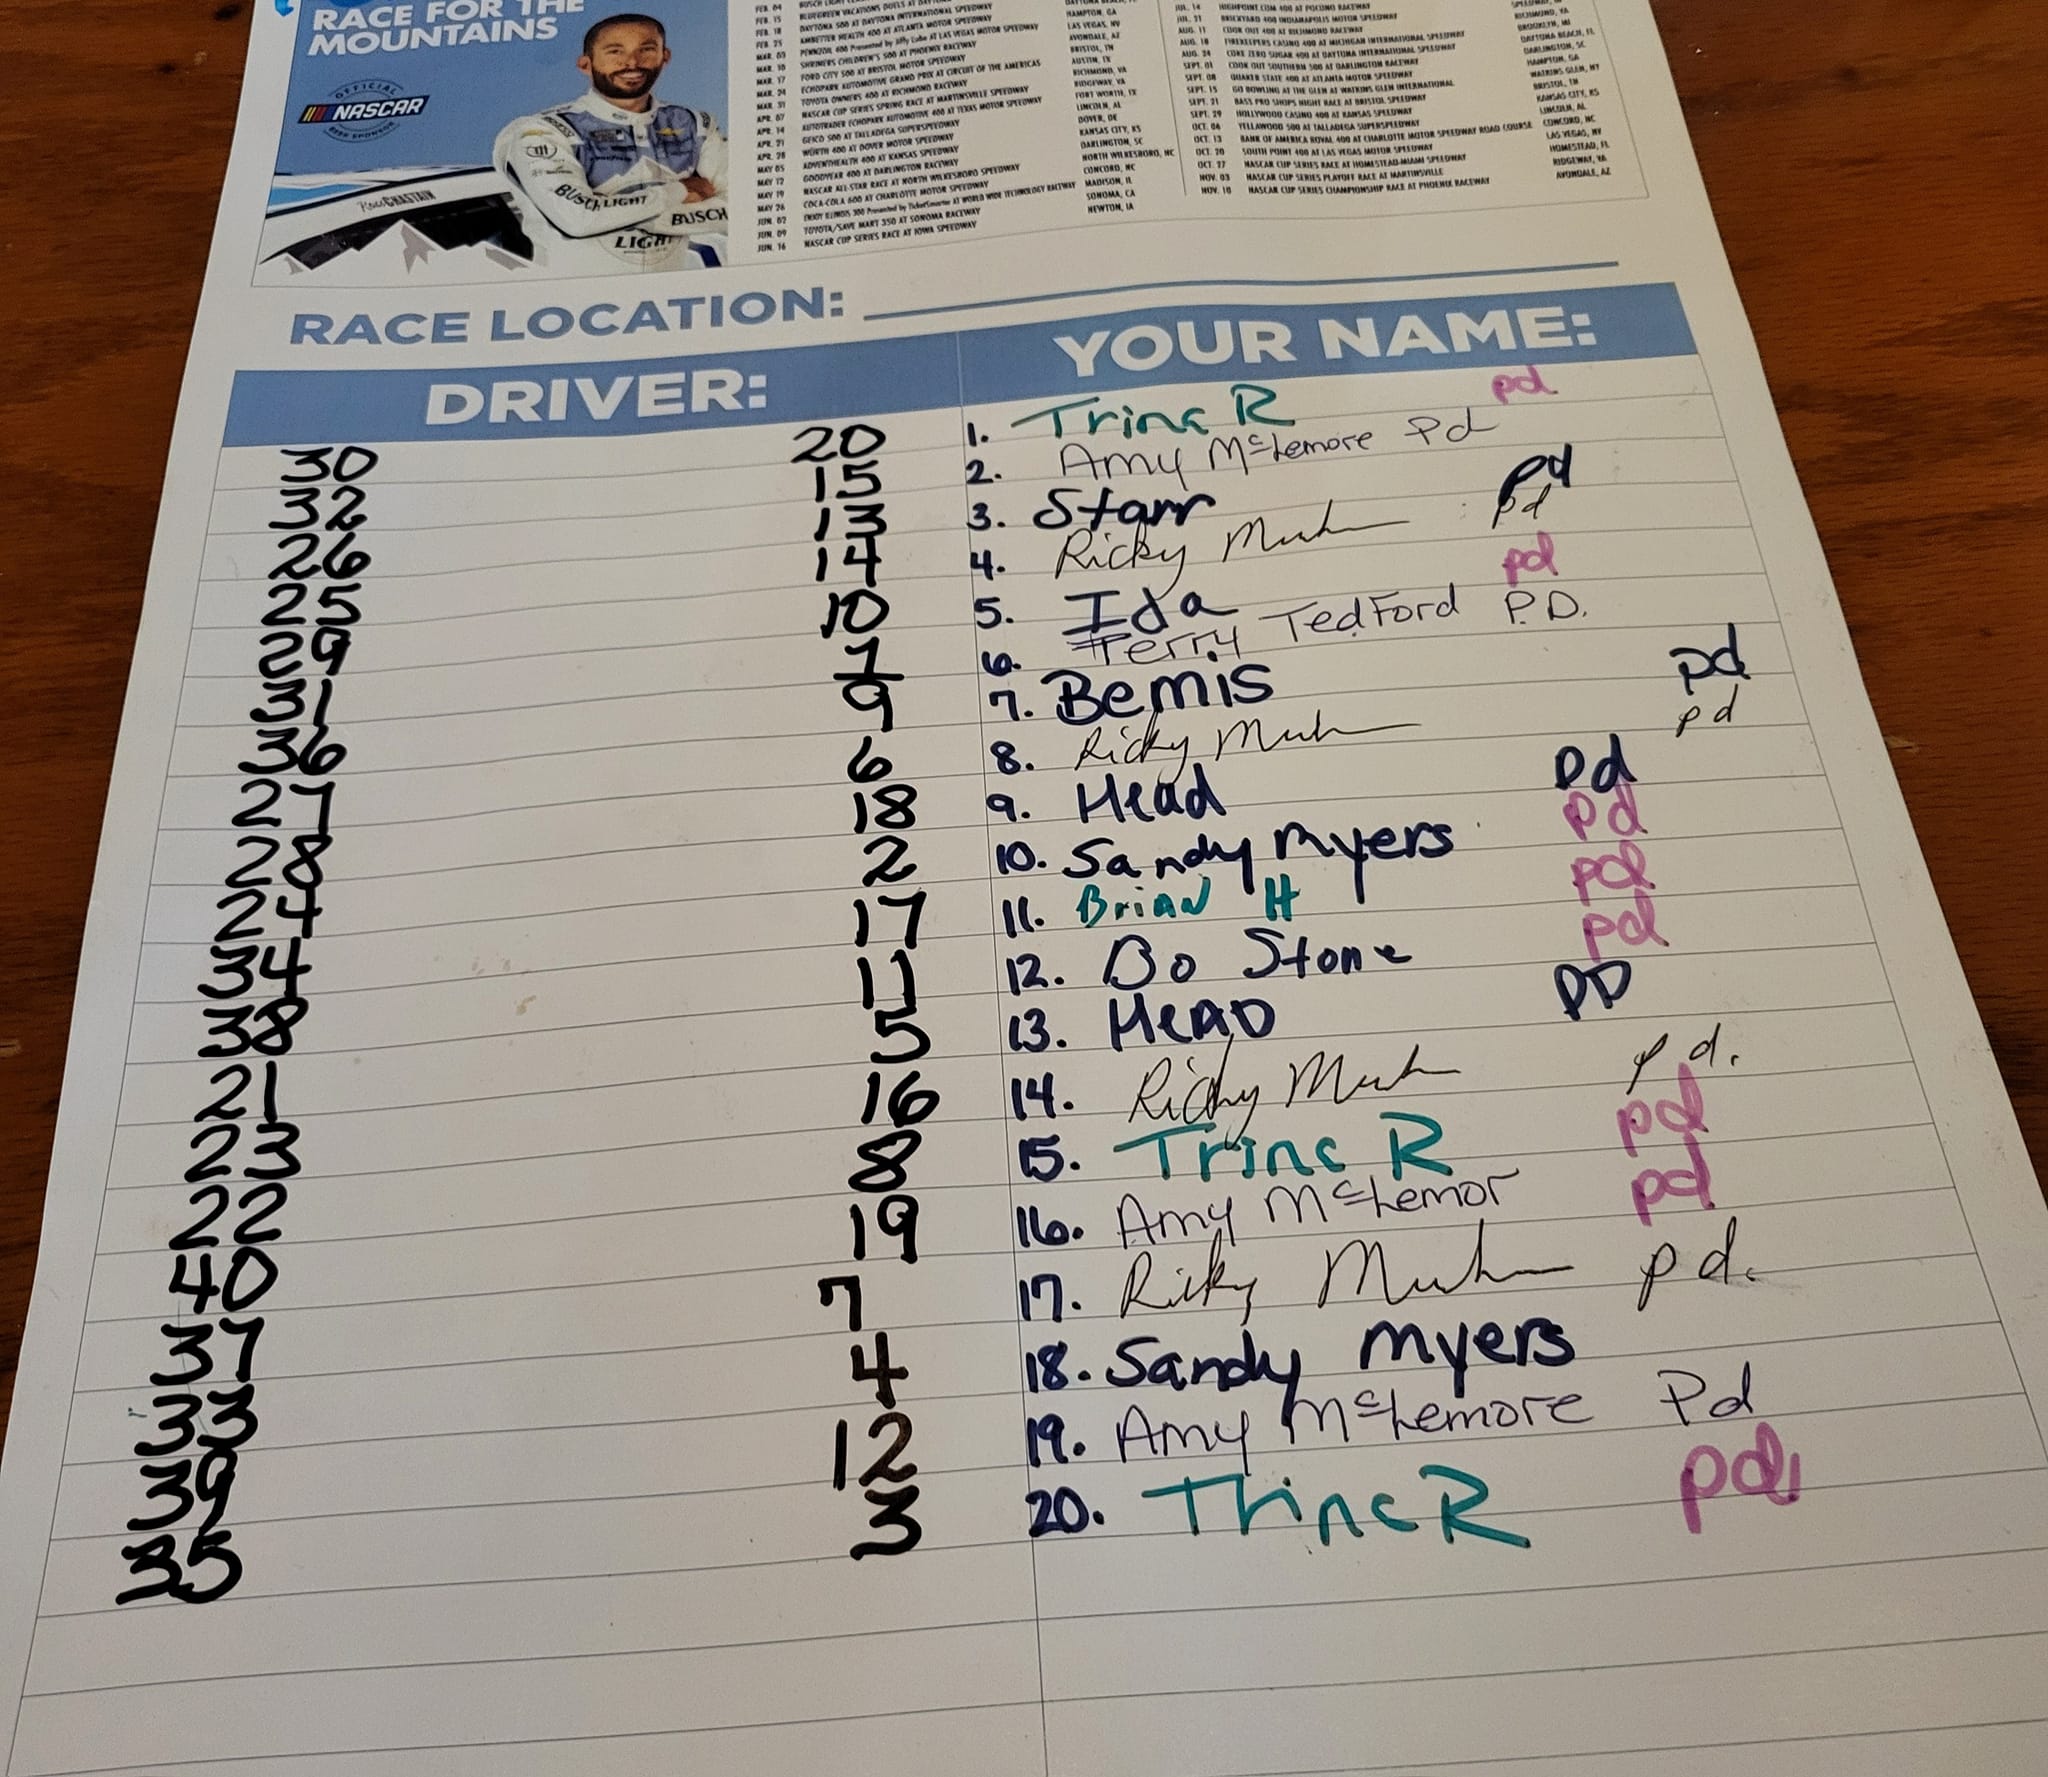 RACE FOR THE
MOUNTAINS
OFFICIAL
NASCAR
BEER SPONSOR
Ross CHASTAIN
BUSCH LIGHT
BUSCH
LIGHT
FEB. 04
FEB. 15 BLUEGREEN VACATIONS DUELS AT DAYTONA
FEB. 18 DAYTONA 500 AT DAYTONA INTERNATIONAL SPEEDWAY
FEB. 25 AMBETTER HEALTH 400 AT ATLANTA MOTOR SPEEDWAY HAMPTON, GA
MAR. 03 PENNZOIL 400 Presented by Jiffy Lube AT LAS VEGAS MOTOR SPEEDWAY LAS VEGAS, NV
MAR. 10 SHRINERS CHILDREN'S 500 AT PHOENIX RACEWAY AVONDALE, AZ
MAR. 17 FORD CITY 500 AT BRISTOL MOTOR SPEEDWAY BRISTOL, TN
MAR. 24 ECHOPARK AUTOMOTIVE GRAND PRIX AT CIRCUIT OF THE AMERICAS AUSTIN, TX
MAR. 31 TOYOTA OWNERS 400 AT RICHMOND RACEWAY RICHMOND, VA
APR. 07 NASCAR CUP SERIES SPRING RACE AT MARTINSVILLE SPEEDWAY RIDGEWAY, VA
APR. 14 AUTOTRADER ECHOPARK AUTOMOTIVE 400 AT TEXAS MOTOR SPEEDWAY FORT WORTH, TX
APR. 21 GEICO 500 AT TALLADEGA SUPERSPEEDWAY LINCOLN, AL
APR. 28 WÜRTH 400 AT DOVER MOTOR SPEEDWAY DOVER, DE
MAY 05 ADVENTHEALTH 400 AT KANSAS SPEEDWAY KANSAS CITY, KS
MAY 12 GOODYEAR 400 AT DARLINGTON RACEWAY DARLINGTON, SC
MAY 19 NASCAR ALL-STAR RACE AT NORTH WILKESBORO SPEEDWAY NORTH WILKESBORO, NC
MAY 26 COCA-COLA 600 AT CHARLOTTE MOTOR SPEEDWAY CONCORD, NC
JUN. 02 ENJOY ILLINOIS 300 Presented by TicketSmarter AT WORLD WIDE TECHNOLOGY RACEWAY MADISON, IL
JUN. 09 TOYOTA/SAVE MART 350 AT SONOMA RACEWAY SONOMA, CA
JUN. 16 NASCAR CUP SERIES RACE AT IOWA SPEEDWAY NEWTON, IA
JUL. 14 HIGHPOINT.COM 400 AT POCONO RACEWAY
JUL. 21 BRICKYARD 400 INDIANAPOLIS MOTOR SPEEDWAY
AUG. 11 COOK OUT 400 AT RICHMOND RACEWAY RICHMOND, VA
AUG. 18 FIREKEEPERS CASINO 400 AT MICHIGAN INTERNATIONAL SPEEDWAY BROOKLYN, MI
AUG. 24 COKE ZERO SUGAR 400 AT DAYTONA INTERNATIONAL SPEEDWAY DAYTONA BEACH, FL
SEPT. 01 COOK OUT SOUTHERN 500 AT DARLINGTON RACEWAY DARLINGTON, SC
SEPT. 08 QUAKER STATE 400 AT ATLANTA MOTOR SPEEDWAY HAMPTON, GA
SEPT. 15 GO BOWLING AT THE GLEN AT WATKINS GLEN INTERNATIONAL WATKINS GLEN, NY
SEPT. 21 BASS PRO SHOPS NIGHT RACE AT BRISTOL SPEEDWAY BRISTOL, TN
SEPT. 29 HOLLYWOOD CASINO 400 AT KANSAS SPEEDWAY KANSAS CITY, KS
OCT. 06 YELLAWOOD 500 AT TALLADEGA SUPERSPEEDWAY LINCOLN, AL
OCT. 13 BANK OF AMERICA ROVAL 400 AT CHARLOTTE MOTOR SPEEDWAY ROAD COURSE CONCORD, NC
OCT. 20 SOUTH POINT 400 AT LAS VEGAS MOTOR SPEEDWAY LAS VEGAS, NV
OCT. 27 NASCAR CUP SERIES RACE AT HOMESTEAD-MIAMI SPEEDWAY HOMESTEAD, FL
NOV. 03 NASCAR CUP SERIES PLAYOFF RACE AT MARTINSVILLE RIDGEWAY, VA
NOV. 10 NASCAR CUP SERIES CHAMPIONSHIP RACE AT PHOENIX RACEWAY AVONDALE, AZ
RACE LOCATION:
DRIVER: YOUR NAME:
30 20 1. Trina R pd
32 15 2. Amy McLemore Pd
26 13 3. Starr pd
25 14 4. Ricky pd
29 10 5. Ida pd
31 1 6. Terry TedFord P.D.
36 9 7. Bemis pd
27 6 8. Ricky pd
28 18 9. Head pd
24 2 10. Sandy Myers pd
34 17 11. Brian H pd
38 11 12. Bo Stone pd
21 5 13. HeAD PD
23 16 14. Ricky pd.
22 8 15. Trina R pd
40 19 16. Amy McLemor pd
37 7 17. Ricky pd.
33 4 18. Sandy Myers
39 12 19. Amy McLemore Pd
35 3 20. Trina R pd